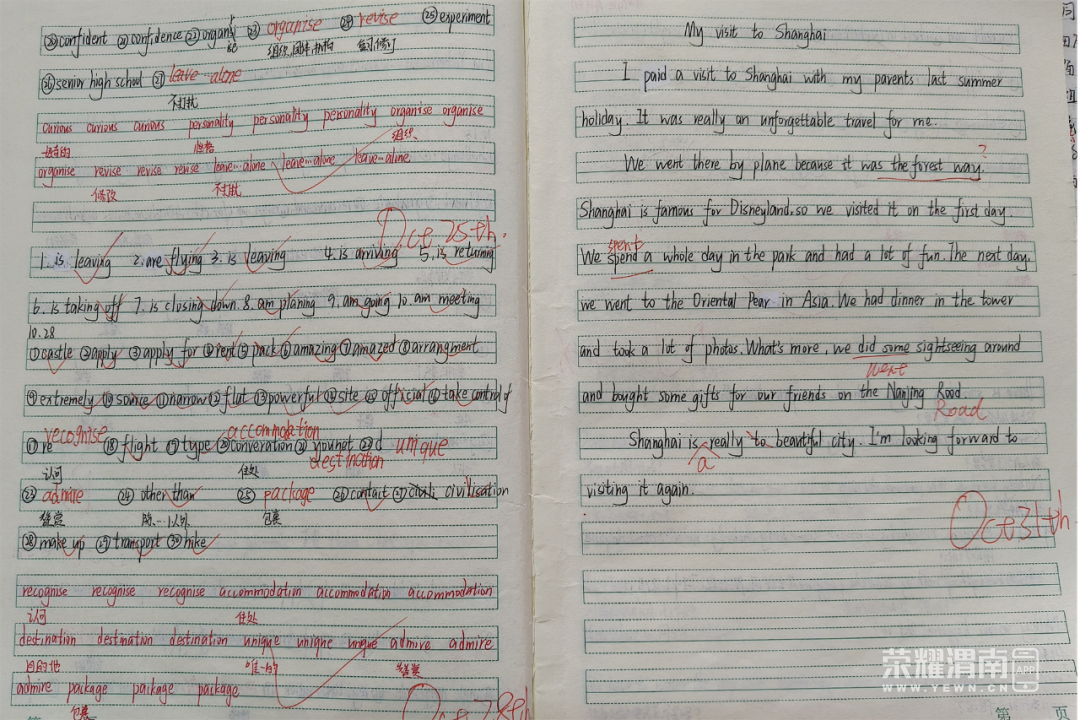 ⑳confident ㉑confidence ㉒organise ㉓ organise ㉔ revise ㉕experiment
组织,团体,机构 复习,修订
㉖senior high school ㉗ leave alone
不打扰
curious curious curious personality personality personality organise organise
好奇的 性格 组织
organise revise revise revise leave…alone leave…alone leave…alone
修改 不打扰
Oct 25th.
1. is leaving 2. are flying 3. is leaving 4. is arriving 5. is returning
6. is taking off 7. is closing down 8. am planing 9. am going 10. am meeting
10.28
①castle ②apply ③apply for ④rent ⑤pack ⑥amazing ⑦amazed ⑧arrangment
⑨extremely ⑩source ⑪narrow ⑫flat ⑬powerful ⑭site ⑮official ⑯take control of
⑰re recognise ⑱flight ⑲type ⑳converation accommodation ㉑ destination ㉒d unique
认可 住处
㉓ admire ㉔ other than ㉕ package ㉖contact ㉗civili civilisation
赞赏 除…以外 包裹
㉘make up ㉙transport ㉚hike
recognise recognise recognise accommodation accommodation accommodation
认可 住处
destination destination destination unique unique unique admire admire
目的地 唯一的 赞赏
admire package package package
包裹
Oct 28th
My visit to Shanghai
I paid a visit to Shanghai with my parents last summer
holiday. It was really an unforgettable travel for me.
We went there by plane because it was the forest way.
?
Shanghai is famous for Disneyland, so we visited it on the first day.
spent
We spend a whole day in the park and had a lot of fun. The next day,
we went to the Oriental Pear in Asia. We had dinner in the tower
and took a lot of photos. What's more, we did some sightseeing around
went
and bought some gifts for our friends on the Nanjing Rood.
Road
Shanghai is really to beautiful city. I'm looking forward to
a
visiting it again.
Oct 31th.
荣耀渭南 APP
WWW.YEWN.CN
第 页